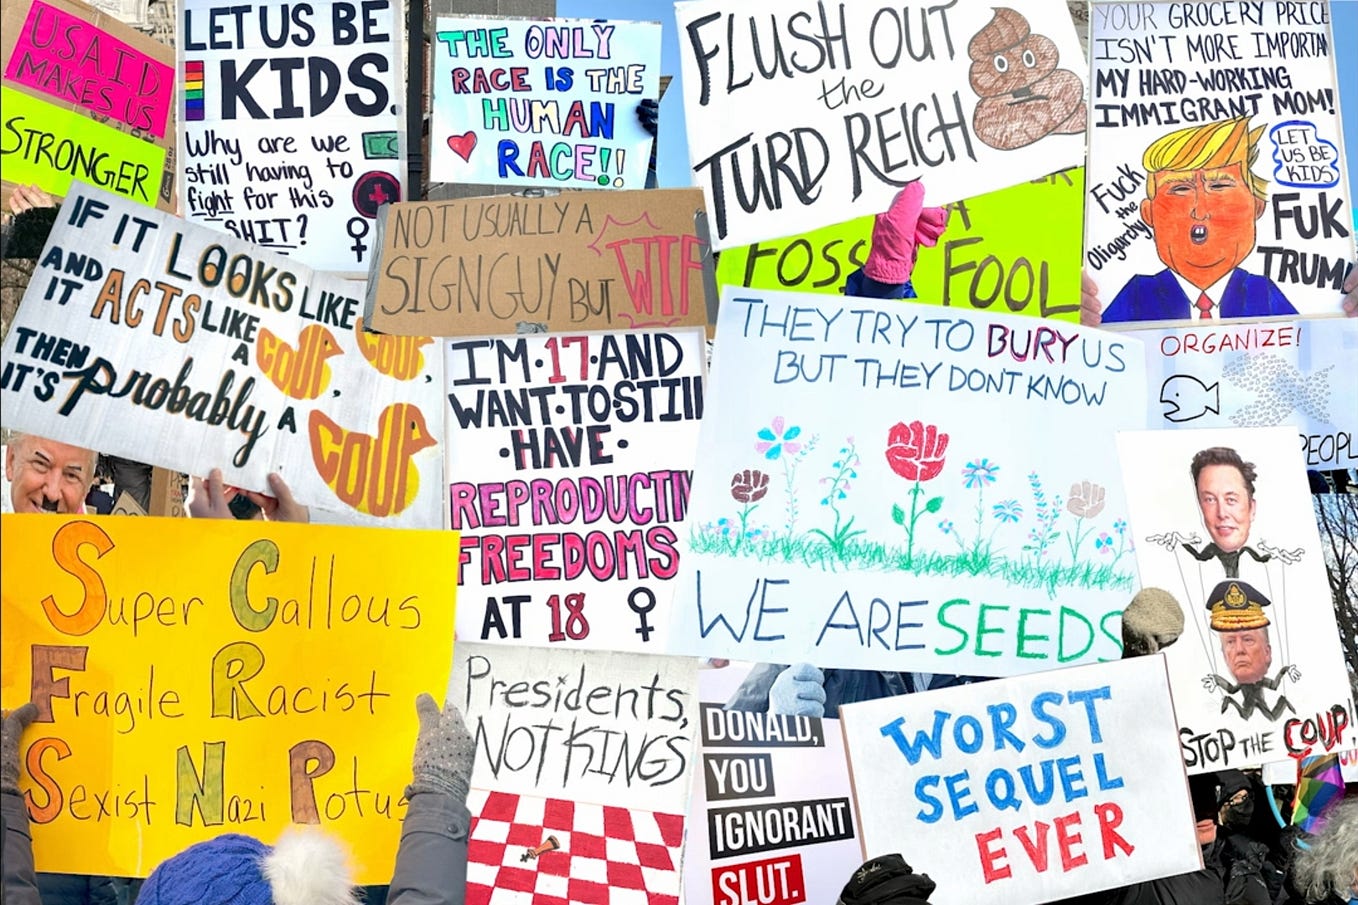 U.S.A.I.D
MAKES US
STRONGER
LET US BE
KIDS.
Why are we
still having to
fight for this
SHIT?
THE ONLY
RACE IS THE
HUMAN
RACE!!
FLUSH OUT
the
TURD REICH
YOUR GROCERY PRICE
ISN'T MORE IMPORTAN
MY HARD-WORKING
IMMIGRANT MOM!
LET
US BE
KIDS
Fuck
the
Oligarchy
FUK
TRUM
NOT USUALLY A
SIGN GUY BUT WTF
A
FOSS
FOOL
IF IT LOOKS LIKE
A COUP,
AND
IT ACTS LIKE
A COUP,
THEN
IT'S probably A
COUP
I'M·17·AND
WANT·TO STILL
·HAVE·
REPRODUCTIV
FREEDOMS
AT 18
THEY TRY TO BURY US
BUT THEY DON'T KNOW
WE ARE SEEDS
ORGANIZE!
PEOPL
STOP THE COUP!
Super Callous
Fragile Racist
Sexist Nazi Potus
Presidents,
NOT KINGS
DONALD,
YOU
IGNORANT
SLUT.
WORST
SEQUEL
EVER